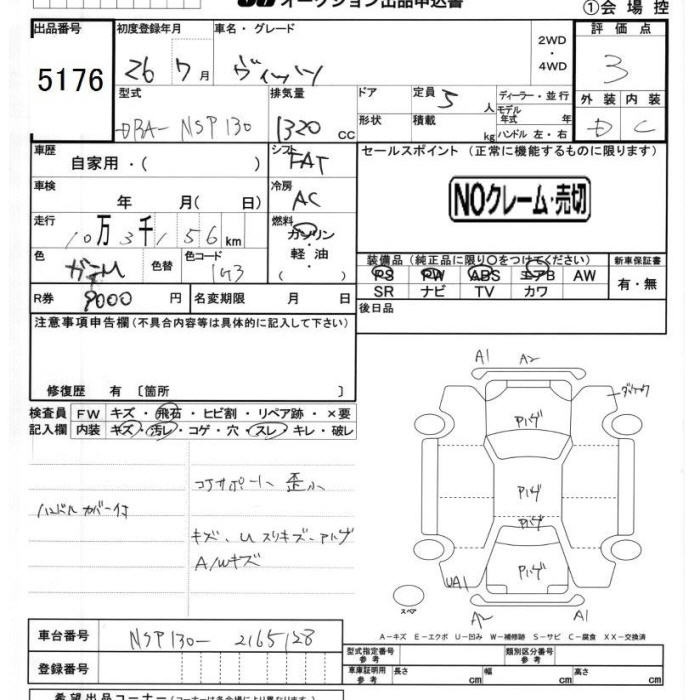 オークション出品申込書
①会場控
出品番号
5176
初度登録年月
26 7月
車名・グレード
ヴィッツ
2WD
・
4WD
評価点
3
外装 内装
D C
型式
DBA-NSP130
排気量
1320 cc
ドア
定員 5 人
ディーラー・並行
形状
積載 kg
モデル年式 年
ハンドル 左・右
車歴
自家用・( )
シフト
FAT
セールスポイント (正常に機能するものに限ります)
NOクレーム・売切
車検
年 月( 日)
冷房
AC
走行
10万3千156km
燃料
ガソリン
軽油
( )
色
ガンM
色替
色コード
1G3
装備品(純正品に限り○をつけてください)
PS PW ABS エアB AW
SR ナビ TV カワ
新車保証書
有・無
R券
9000円
名変期限 月 日
後日品
注意事項申告欄(不具合内容等は具体的に記入して下さい)
修復歴 有 〔箇所 〕
検査員記入欄
FW キズ・飛石・ヒビ割・リペア跡・×要
内装 キズ・汚レ・コゲ・穴・スレ・キレ・破レ
コアサポート 歪小
ハンドルカバー付
キズ、U スリキズ-アハゲ
A/Wキズ
A1
A2
Pハゲ
Pハゲ
Pハゲ
Pハゲ
UA1
A2
A1
スペア
A-キズ E-エクボ U-凹み W-補修跡 S-サビ C-腐食 XX-交換済
車台番号
NSP130-2165128
登録番号
型式指定番号
参考
類別区分番号
参考
車庫証明用
参考
長さ cm
幅 cm
高さ cm
希望出品コーナー(コーナーは各会場により異なります)